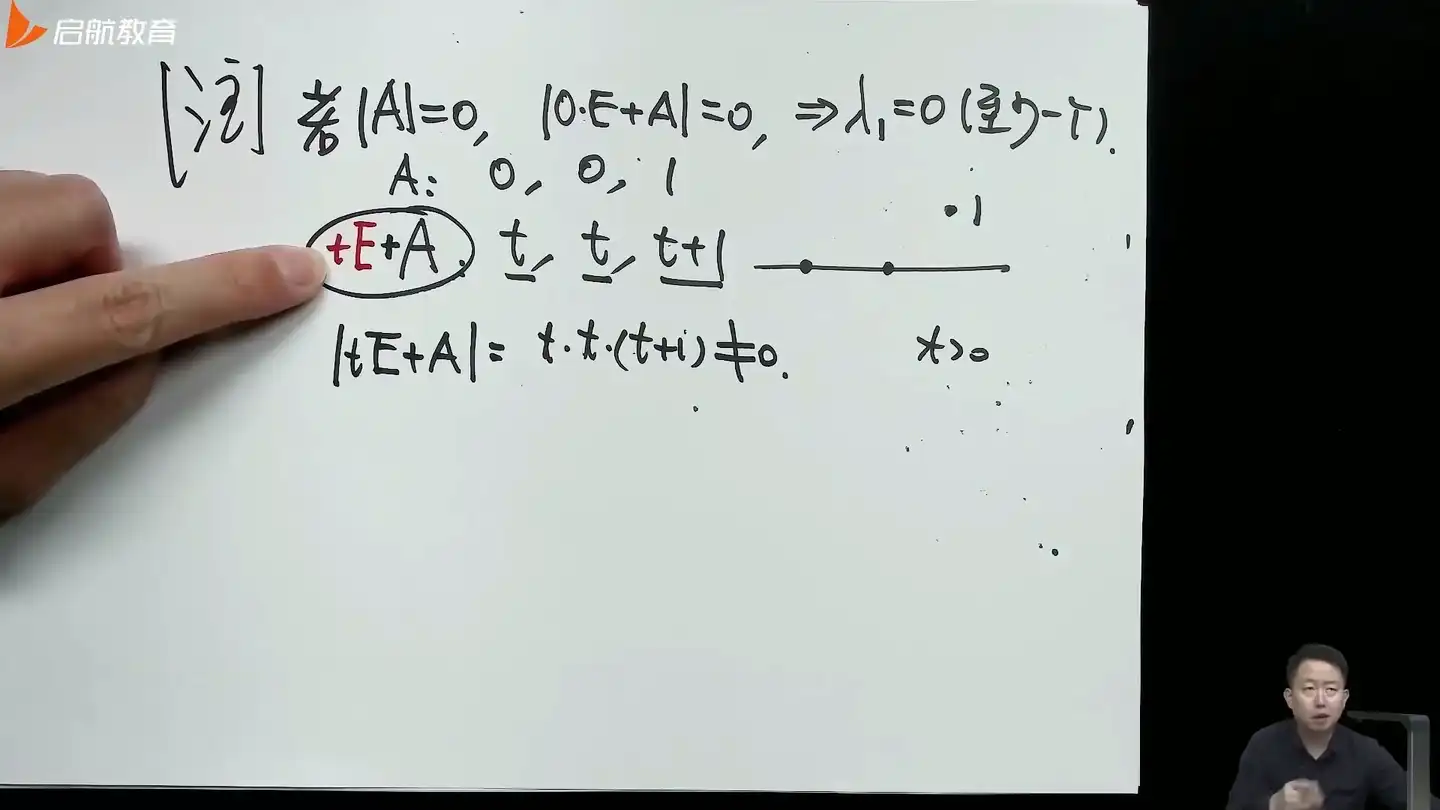 启航教育
[注] 若|A|=0, |0·E+A|=0, ⇒λ₁=0(至少一个).
A: 0, 0, 1
·1
tE+A. t, t, t+1
|tE+A|= t·t·(t+1)≠0. t>0